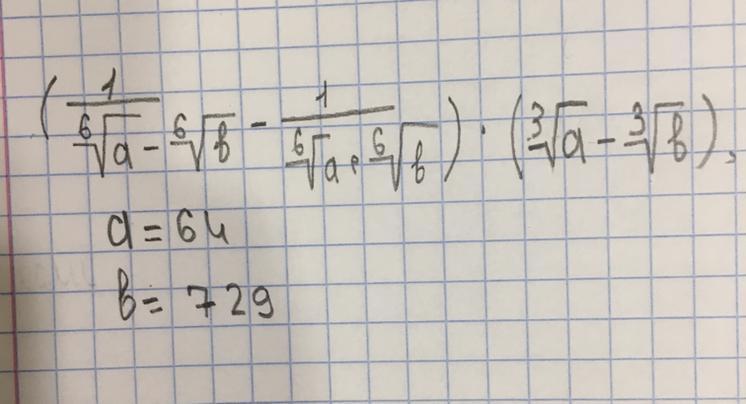 (1/(⁶√a - ⁶√b) - 1/(⁶√a · ⁶√b)) · (³√a - ³√b),
a = 64
b = 729